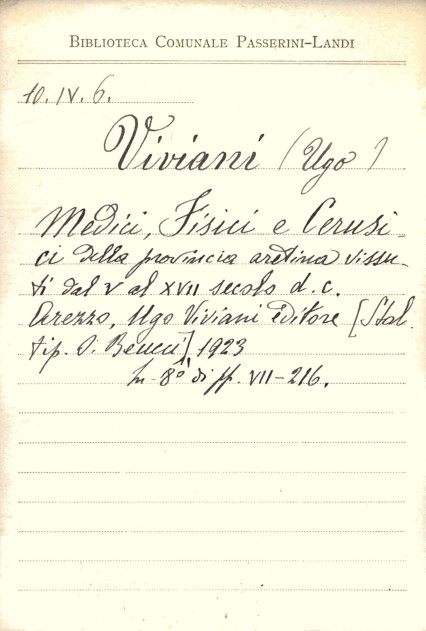 BIBLIOTECA COMUNALE PASSERINI-LANDI
10. IV. 6.
Viviani (Ugo)
Medici, Fisici e Cerusi-
ci della provincia aretina vissu-
ti dal V al XVII secolo d. C.
Arezzo, Ugo Viviani editore [Stab.
tip. O. Beucci], 1923
In-8° di pp. VII-216.